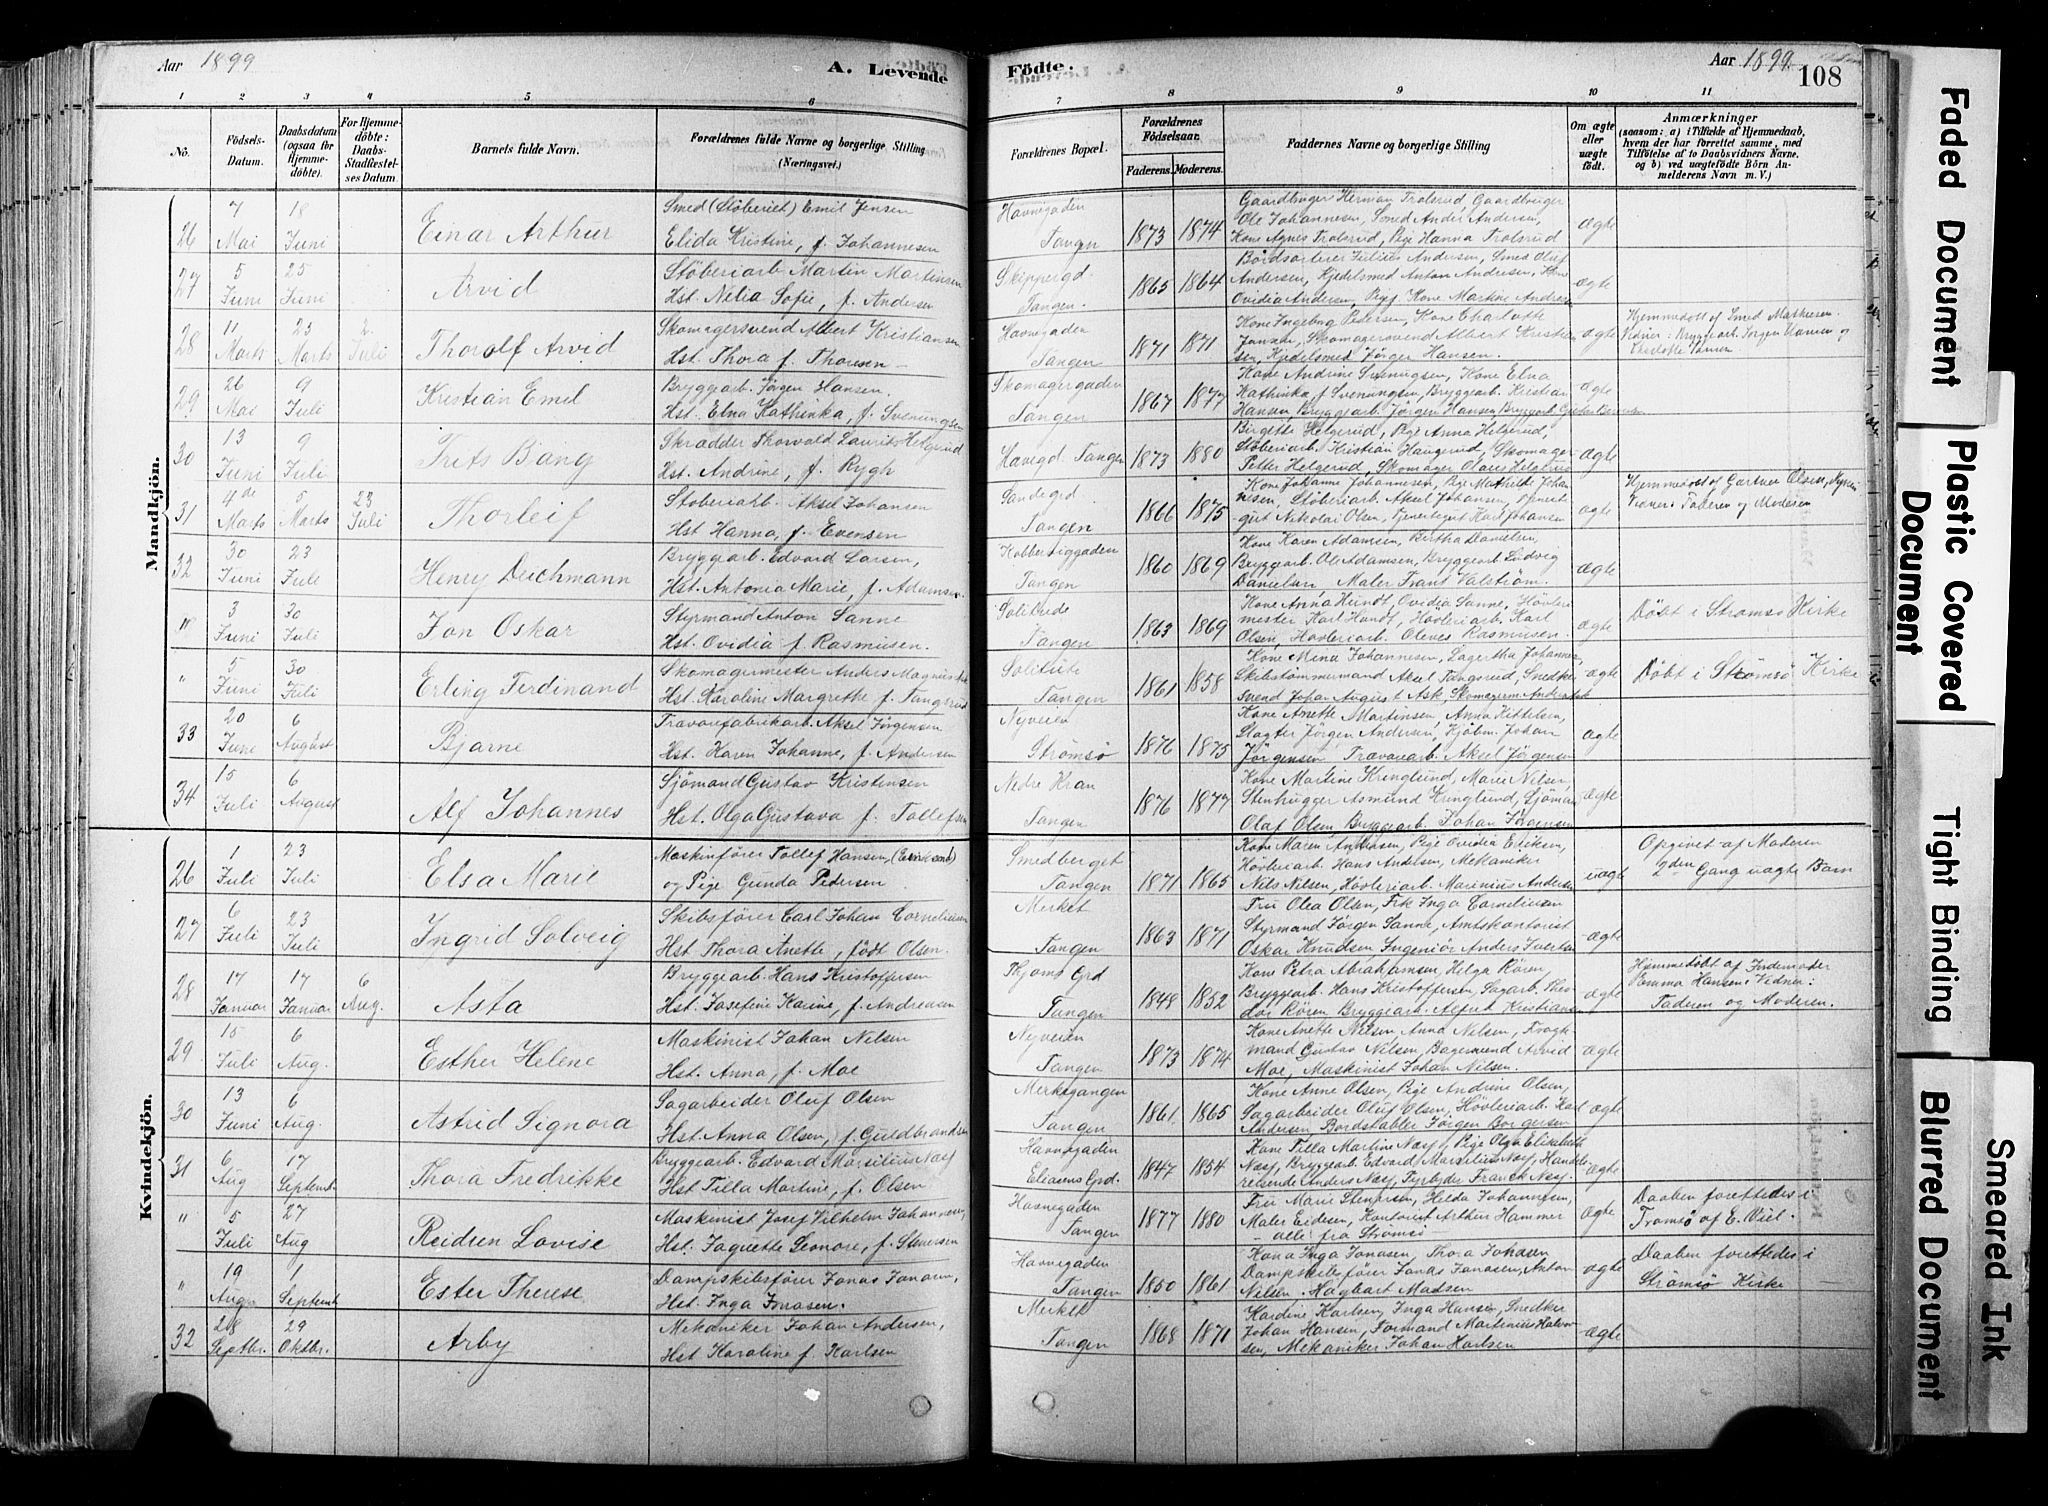 Aar 1899
A. Levende
Födte.
Aar 1899
108
1 2 3 4 5 6 7 8 9 10 11
No.
Födsels-Datum.
Daabsdatum (ogsaa for Hjemmedöbte).
For Hjemmedöbte: Daabs-Stadfestelses Datum.
Barnets fulde Navn.
Forældrenes fulde Navne og borgerlige Stilling (Næringsvei.)
Forældrenes Bopæl.
Forældrenes Födselsaar.
Faderens. Moderens.
Faddernes Navne og borgerlige Stilling
Om ægte eller uægte födt.
Anmærkninger
(saasom: a) i Tilfælde af Hjemmedaab, hvem der har forrettet samme, med Tilföielse af to Daabsvidners Navne, og b) ved uægtefödte Börn Anmelderens Navn m. V.)
Mandkjön.
26 7 Mai 18 Juni Einar Arthur
Smed (Stöberiet) Emil Jensen
Elida Kristine, f. Johannesen
Havnegaden Tangen 1873 1874
Gaardbruger Herman Trolsrud, Gaardbruger
Ole Johannesen, Smed Ander Andersen,
Kone Agnes Trolsrud, Pige Hanna Trolsrud
ægte
27 5 Juni 25 Juni Arvid
Stöberiarb Martin Martinsen
Hst. Nelia Sofie, f. Andersen
Skippergd. Tangen. 1865 1864
Bordsorterer Julius Andersen, Smed Oluf
Andersen, Kjedelsmed Anton Andersen, Kone
Ovidia Andersen, Kone Martine Andrese
ægte
28 11 Marts 25 Marts 2. Juli Thorolf Arvid
Skomagersvend Albert Kristiansen
Hst. Thora f. Thoresen
Havnegaden Tangen 1871 1871
Kone Ingeborg Pedersen, Kone Charlotte
Jansen, Skomagersvend Albert Kristian
sen, Kjedelsmed Jörger Hansen.
ægte
Hjemmedöbt af Smed Mathiesen.
Vidner: Bryggearb. Jörgen Hansen og
Charlotte Hansen
29 26 Mai 9 Juli Kristian Emil
Bryggearb. Jörgen Hansen.
Hst. Elna Kathinka, f. Sveningsen
Skomagergaden Tangen 1867 1877
Kone Andrine Sveningsen, Kone Elna
Kathinka f. Svenningsen, Bryggearb. Kristian
Hansen Bryggearb. Jörgen Hansen, Bryggearb
ægte
30 13 Juni 9 Juli Frits Bang
Skrædder Thorvald Laurits Helgerud
Hst. Andrine, f. Rygh
Havegd. Tangen 1873 1880
Birgette Helgerud, Pige Anna Helgerud,
Stöberiarb. Kristian Haugerud, Skomager
Petter Helgerud, Skomager Olaus Helgerud
ægte
31 4de Marts 5 Marts 23 Juli Thorleif
Stöberiarb. Aksel Johansen
Hst Hanna, f. Evensen
Sandegrd Tangen 1866 1875
Kone Johanne Johannesen, Pige Mathilde Johan
nesen, Stöberiarb. Aksel Johansen, Tjenest
gut Nikolai Olsen, Tjenestegut Karl Johansen
ægte
Hjemmedöbt af Gartner Olsen,
Vidner: Faderen og Moderen
32 30 Juni 23 Juli Henry Deichmann
Bryggearb. Edvard Larsen,
Hst. Antonia Marie, f. Adamsen.
Kobbervikgaden Tangen 1860 1869
Kone Karen Adamsen, Birtha Danielsen,
Bryggearb. Ole Adamsen, Bryggearb Ludvig
Danielsen Maler Frans Valström.
ægte
" 3 Juni 30 Juli Jon Oskar
Styrmand Anton Sanne
Hst. Ovidia f. Rasmusen.
Solitude Tangen 1863 1869
Kone Anna Hundt, Ovidia Sanne, Hövleri
mester Karl Hundt, Hövleriarb. Karl
Olsen, Hövleriarb. Oleves Rasmusen.
ægte
Döbt i Strömsö Kirke
" 5 Juni 30 Juli Erling Ferdinand
Skomagermester Anders Magnus Ask
Hst. Karoline Margrethe f. Tangsrud
Solitute Tangen 1861 1858
Kone Mina Johannesen, Lagertha Johannes,
Skibstömmermand Aksel Tangsrud, Snedker
svend Johan August Ask, Skomagerm. Anders Ask
ægte
Döbt i Strömsö Kirke
33 20 Juni 6 August Bjarne
Travarefabrikarb. Aksel Jörgensen
Hst. Karen Johanne, f. Andersen
Nyveien Strömsö 1876 1875
Kone Anette Martinsen, Anna Kittelsen,
Slagter Jörgen Andersen, Kjöbm. Johan
Jörgensen, Travarearb. Aksel Jörgensen
ægte
34 15 Juli 6 August Alf Johannes
Sjömand Gustav Kristensen
Hst. Olga Gustava f. Tollefsen
Nedre Kran Tangen 1876 1877
Kone Martine Kringlund, Marie Nilsen,
Stenhugger Asmund Kringlund, Sjöman
Olaf Olsen Bryggearb. Johan Jörgensen
ægte
Kvindekjön.
26 1 Juli 23 Juli Elsa Marie
Maskinförer Tollef Hansen, (Eriksend)
og Pige Gunda Pedersen
Smedberget Tangen 1871 1865
Kone Maren Andersen, Pige Ovidia Eriksen,
Hövleriarb. Hans Andersen, Mekaniker
Nils Nilsen, Hövleriarb. Marinius Andersen
uægte
Opgivet af Moderen
2den Gang uægte Barn
27 6 Juli 23 Juli Ingrid Solveig
Skibsförer Carl Johan Corneliusen
Hst. Thora Anette, födt Olsen.
Merket Tangen 1863 1871
Fru Olea Olsen, Frk Inga Corneliusen
Styrmand Jörgen Sanne, Amtskontorist
Oskar Knudsen Ingeniör Anders Ivertsen
ægte
28 17 Januar 17 Januar 6 Aug. Asta
Bryggearb. Hans Kristoffersen
Hst. Josefine Karine, f. Andreasen
Thjoms Grd Tangen 1848 1852
Kone Petra Abrahamsen, Helga Rören,
Bryggearb. Hans Kristoffersen, Sagarb. Theo
dor Rören Bryggearb. Alfred Kristiansen
ægte
Hjemmedöbt af Jordemoder
Emma Hansen. Vidner:
Faderen og Moderen.
29 15 Juli 6 Aug. Esther Helene
Maskinist Johan Nilsen
Hst. Anna, f. Moe
Nyveien Tangen 1873 1874
Kone Anette Nilsen, Anna Nilsen, Fragt
mand Gustav Nilsen, Bagersvend Arvid
Moe, Maskinist Johan Nilsen.
ægte
30 13 Juni 6 Aug. Astrid Signora
Sagarbeider Oluf Olsen
Hst. Anna Olsen, f. Guldbrandsen
Merkesgangen Tangen 1861 1865
Kone Anne Olsen, Pige Andrine Olsen,
Sagarbeider Oluf Olsen, Hövleriarb. Karl
Andersen Bordstabler Jörgen Borgersen
ægte
31 6 Aug 17 Septemb. Thora Fredrikke
Bryggearb. Edvard Marsilius Næss
Hst Tilla Martine, f. Olsen
Havnegaden Eliasens Grd. 1847 1854
Kone Tilla Martine Næss, Pige Olga Elisabeth
Næss, Bryggearb. Edvard Marsilius Næss, Handels
reisende Anders Næss, Fyrbyder Franck Næss.
ægte
" 5 Juli 27 Aug Reidsen Lovise
Maskinist Josef Vilhelm Johannesen,
Hst. Jaquette Leonore, f. Stenersen
Havnegaden Tangen 1877 1880
Fru Marie Stenersen, Helda Johannesen,
Maler Eidesen, Kontorist Arthur Hammer
- alle fra Strömsö
ægte
Daaben forettedes i
Tromsö af E. Viel.
" 19 Aug 1 Septemb Ester Therese
Dampskibsförer Jonas Jonasen,
Hst. Inga Jonasen.
Havnegaden Tangen 1850 1861
Kona Inga Jonasen, Thora Johasen
Dampskibsförer Jonas Jonasen, Anton
Nilsen. Hagbart Madsen
ægte
Daaben forettedes i
Strömsö Kirke
32 28 Septbr. 29 Oktbr. Arby
Mekaniker Johan Andersen,
Hst Karoline f. Karlsen
Merket Tangen 1868 1871
Hardine Karlsen, Inga Hansen, Snedker
Johan Hansen, Formand Martinius Halvor
sen, Mekaniker Johan Karlsen
ægte
Faded Document
Plastic Covered Document
Tight Binding
Blurred Document
Smeared Ink